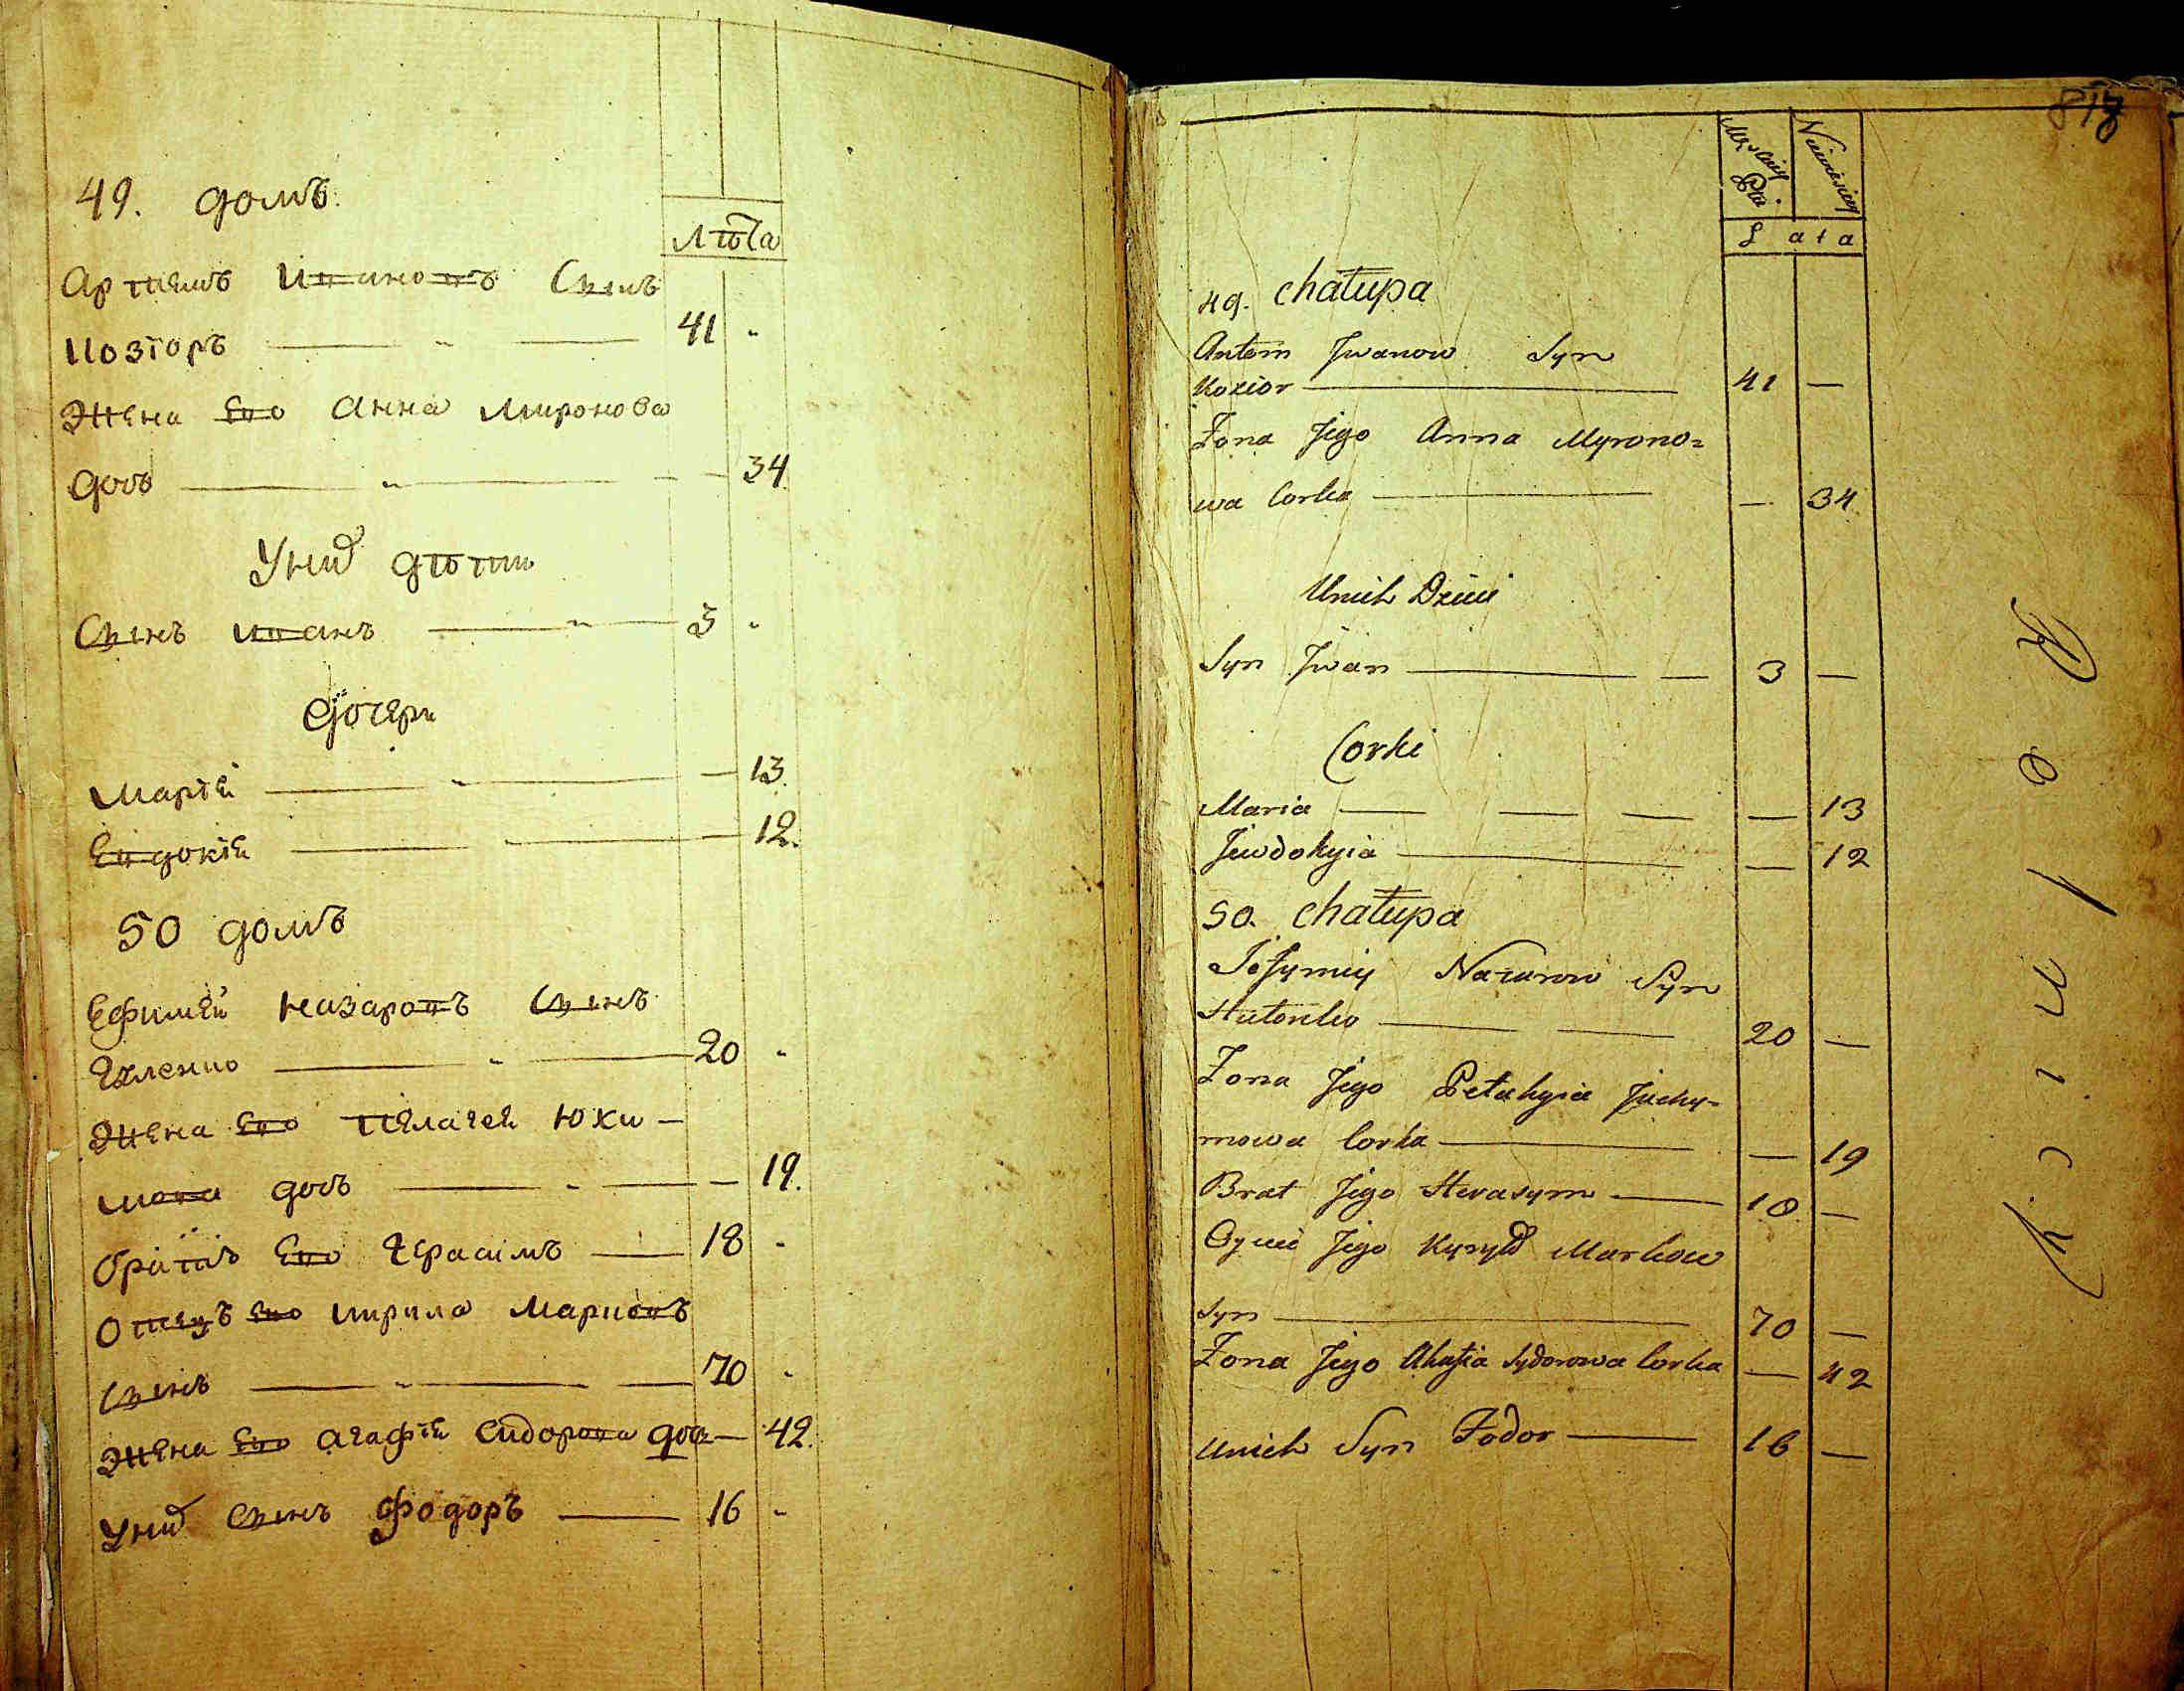 49. домъ.
Лѣта
Артемъ Ивановъ Сынъ
Козіоръ — „ — 41 „
Жена Его Анна Миронова
дочь — „ — — 34
Уних дѣти
Сынъ Иванъ — „ — 3 „
Дочери
Марія — „ — — 13.
Евдокія — „ — — 12.
50 домъ
Ефимей Назаровъ Сынъ
— „ — 20 „
Жена Его Пелагея Юхи-
мова дочь — „ — — 19.
братъ Его Герасимъ — 18 „
Отецъ Его Кирила Марковъ
Сынъ — „ — 70 „
Жена Его Агафія Сидорова дочь — 42.
Уних Сынъ Фодоръ — 16 „
Męskiey Płci.
Niewieściey
Lata
49. Chałupa
Artem Jwanow Syn
Kozior — 41 —
Żona Jego Anna Myrono=
wa Corka — — 34
Unich Dzieci
Syn Jwan — 3 —
Corki
Maria — — 13
Jewdokyia — — 12
50. Chałupa
Jefymiy Nazarow Syn
— 20 —
Żona Jego Pełahyia Juchy=
mowa Corka — — 19
Brat Jego Herasym — 18 —
Oyciec Jego Kyryło Markow
Syn — 70 —
Żona Jego Ahafia Sydorowa Corka — 42
Unich Syn Fodor — 16 —
Rolniczy